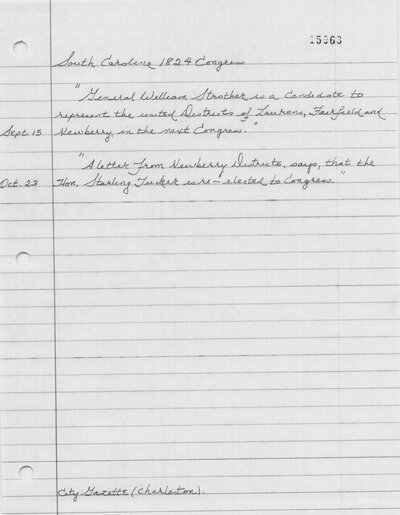 15963
South Carolina 1824 Congress
"General William Strother is a candidate to
represent the united Districts of Laurens, Fairfield and
Sept. 15 Newberry, in the next Congress."
"A letter from Newberry Districts, says, that the
Oct. 23 Hon. Starling Tucker is re-elected to Congress."
City Gazette (Charleston).